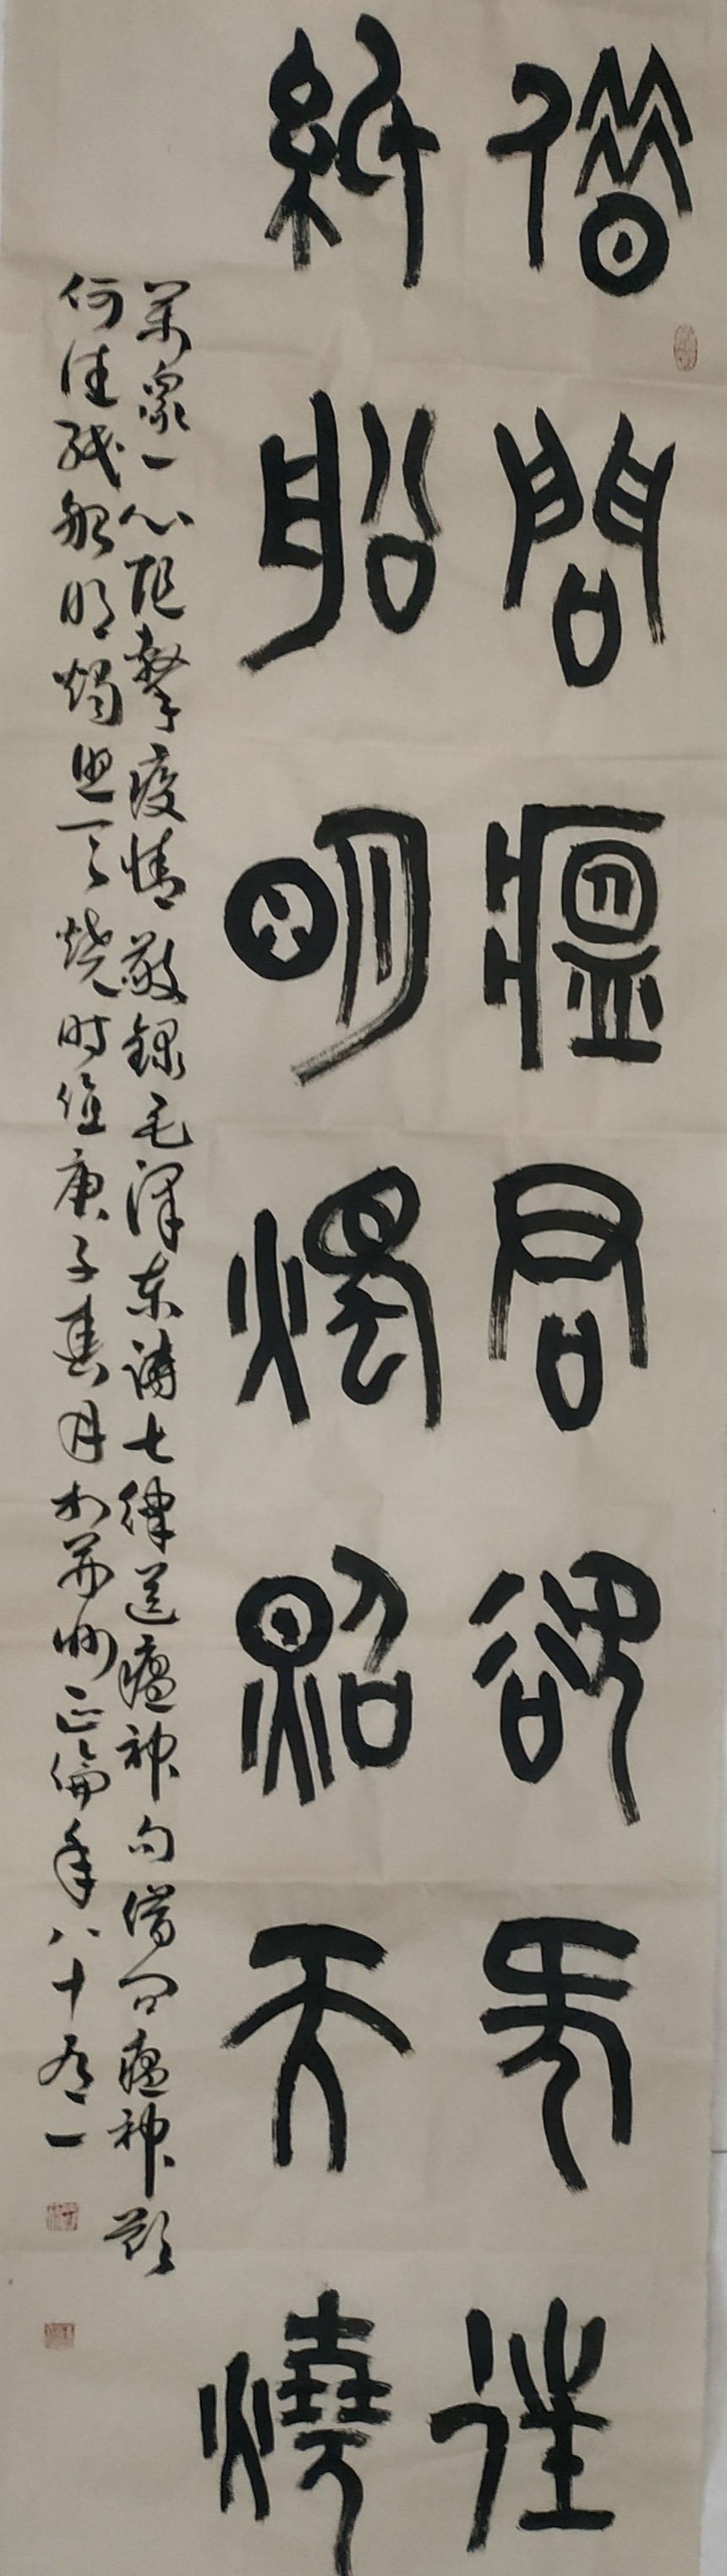 借問瘟君欲何往
紙船明燭照天燒
萬衆一心阻擊疫情敬録毛澤东诗七律送瘟神句借问瘟神欲
何往紙船明燭照天燒时值庚子春月於苏州正倫年八十有一